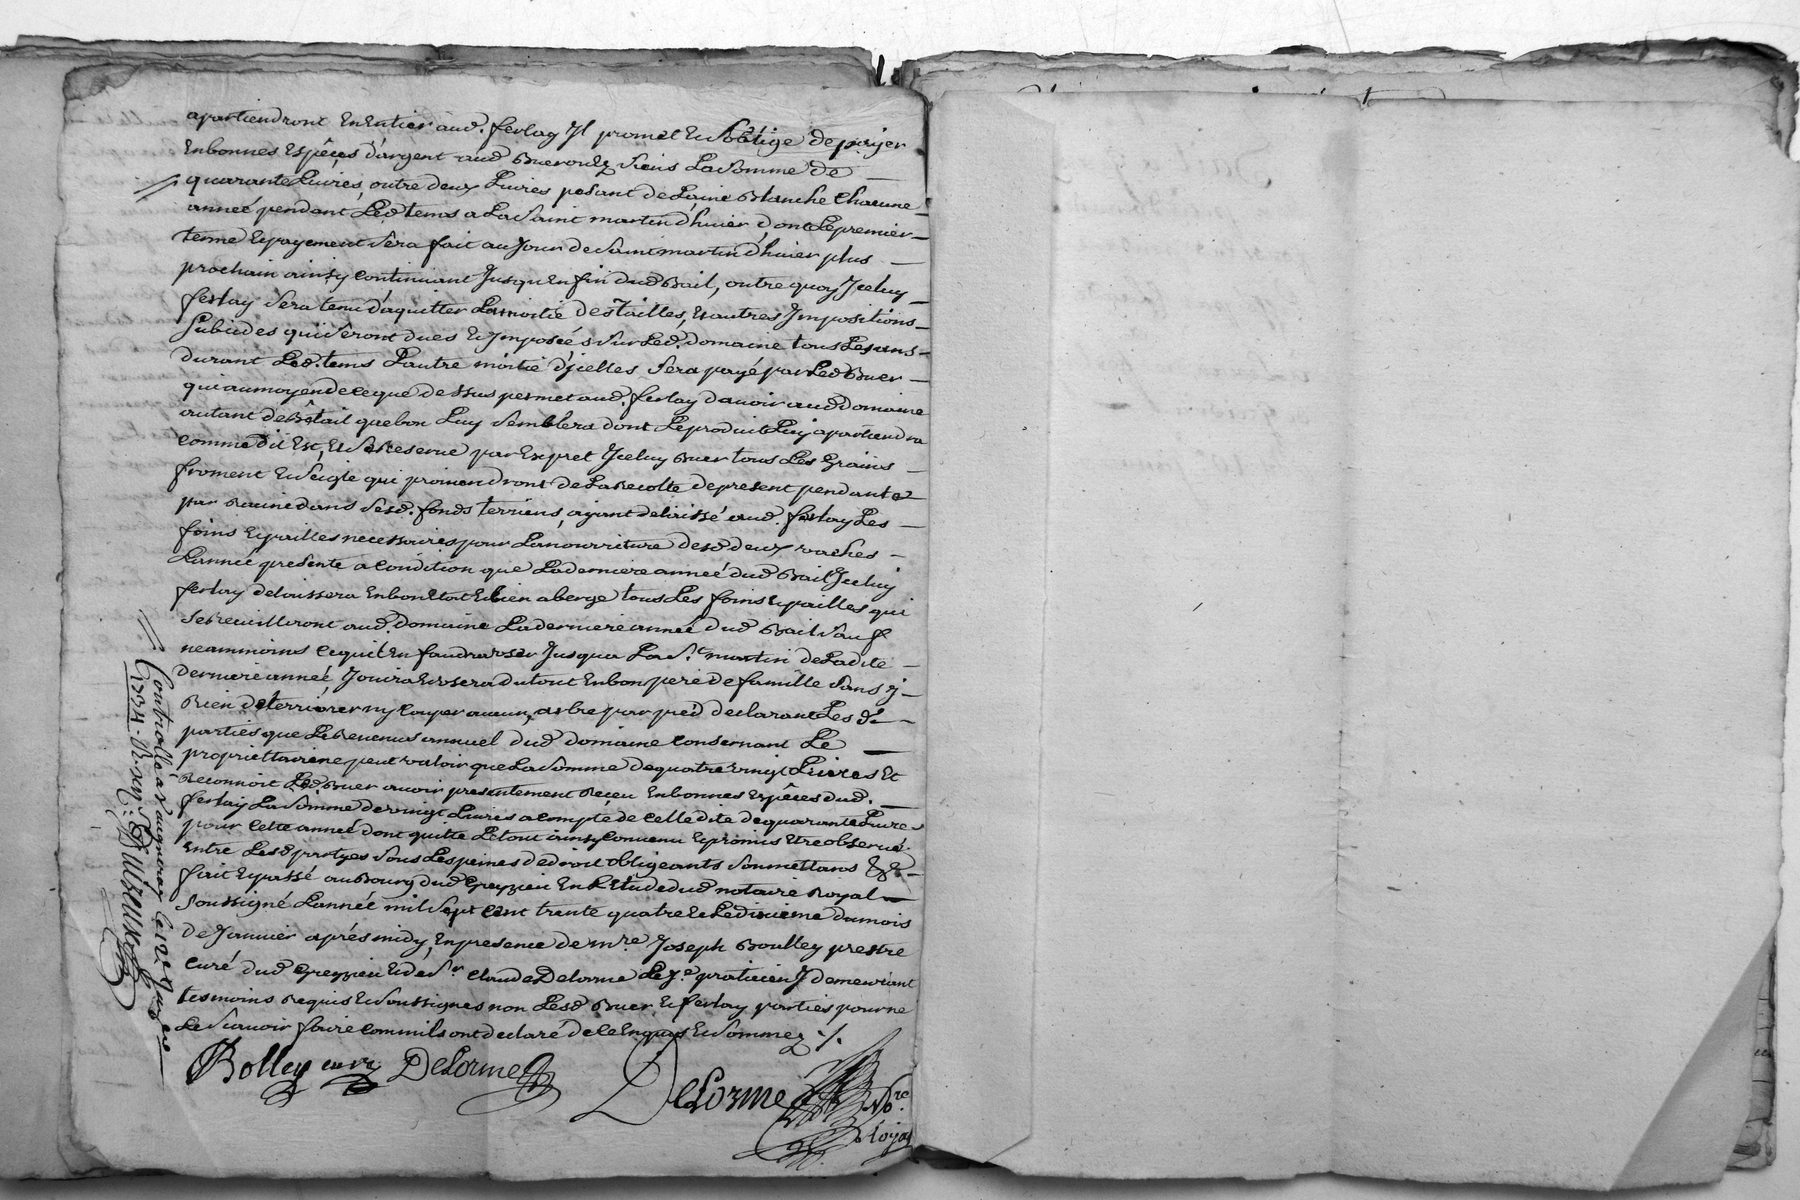 apartiendront En Entier aud. ferlay Jl promet Et Soblige de payer
En bonnes Espêces d'argent aud Buer ou Es Siens La Somme de
quarante Livres, outre deux Livres pesant de Laine Blanche Chacune
année pendant Led tems a La Saint martin dhiuer, dont Le premier
terme Et payement Sera fait au Jour de Saint martin dhiuer plus
prochain ainsy Continuant Jusqu En fin dud Bail, outre quoy Jceluy
ferlay Sera tenu d'aquitter La moitié des Tailles, Et autres Jmpositions
Subcides qui Seront dues Et Jmposéés Sur Led. domaine tous Les ans
durant Led. tems Lautre moitié d'jcelles Sera payé par Led Buer
qui au moyen de ce que dessus permet aud. ferlay dauoir aud Domaine
autant de Bêtail que bon Luy Semblera dont Le produit Luy apartiendra
comme dit Est, Et Se Reserue par Expret Jceluy Buer tous Les Grains
froment Et Seigle qui prouiendront de La Recolte de present pendante
par Racine dans Sesd. fonds terriens, ayant delaissé aud. ferlay Les
foins Et pailles necessaires pour La nourriture desd deux vaches
Lanneé presente a Condition que La derniere anneé dud Bail Jceluy
ferlay delaissera En bon Etat Et bien aberge tous Les foins Et pailles qui
Se Recuilliront aud. Domaine La derniere année dud Bail Sauf
neammoins Ce quil En faudra user Jusqua La St. martin de La dite
derniere année, Jouira Et usera du tout En bon pere de famille Sans y
Rien deterriorer ny Couper aucun arbre par pied declarant Les d.
parties que Le Reuenus annuel dud Domaine Consernant Le
propriettaire ne peut valoir que La Somme de quatre vingt Liures Et
Reconnoit Led. Buer auoir presentement Receu En bonnes Espêces dud.
ferlay La Somme de vingt Liures a compte de Celle dite de quarante Liures
pour Cette anneé dont quitte Le tout ainsy Conuenu Et promis Etre obserué
Entre Lesd partyes Sous Les peines de droit obligeants Soumettans &c
fait Et passé au Bourg dud Grezieu En L'Etude dud notaire Royal
Soussigné Lannée mil Sept Cent trente quatre Et Le dixieme du mois
de Januier aprés midy, En presence de mre Joseph Boulley prestre
curé dud Grezzieu Et de Sr. Claude Delorme Le Je. praticien J demeurant
tesmoins Requis Et Soussignes non Lesd Buer Et ferlay parties pour ne
Le Scauoir faire Comm'ils ont declaré de Ce Enquis Et Sommez ./.
Bolley curé Delorme
Delorme
Nore
Royal
Controllé a Vaugneray Le 12e Januier
1734. R.